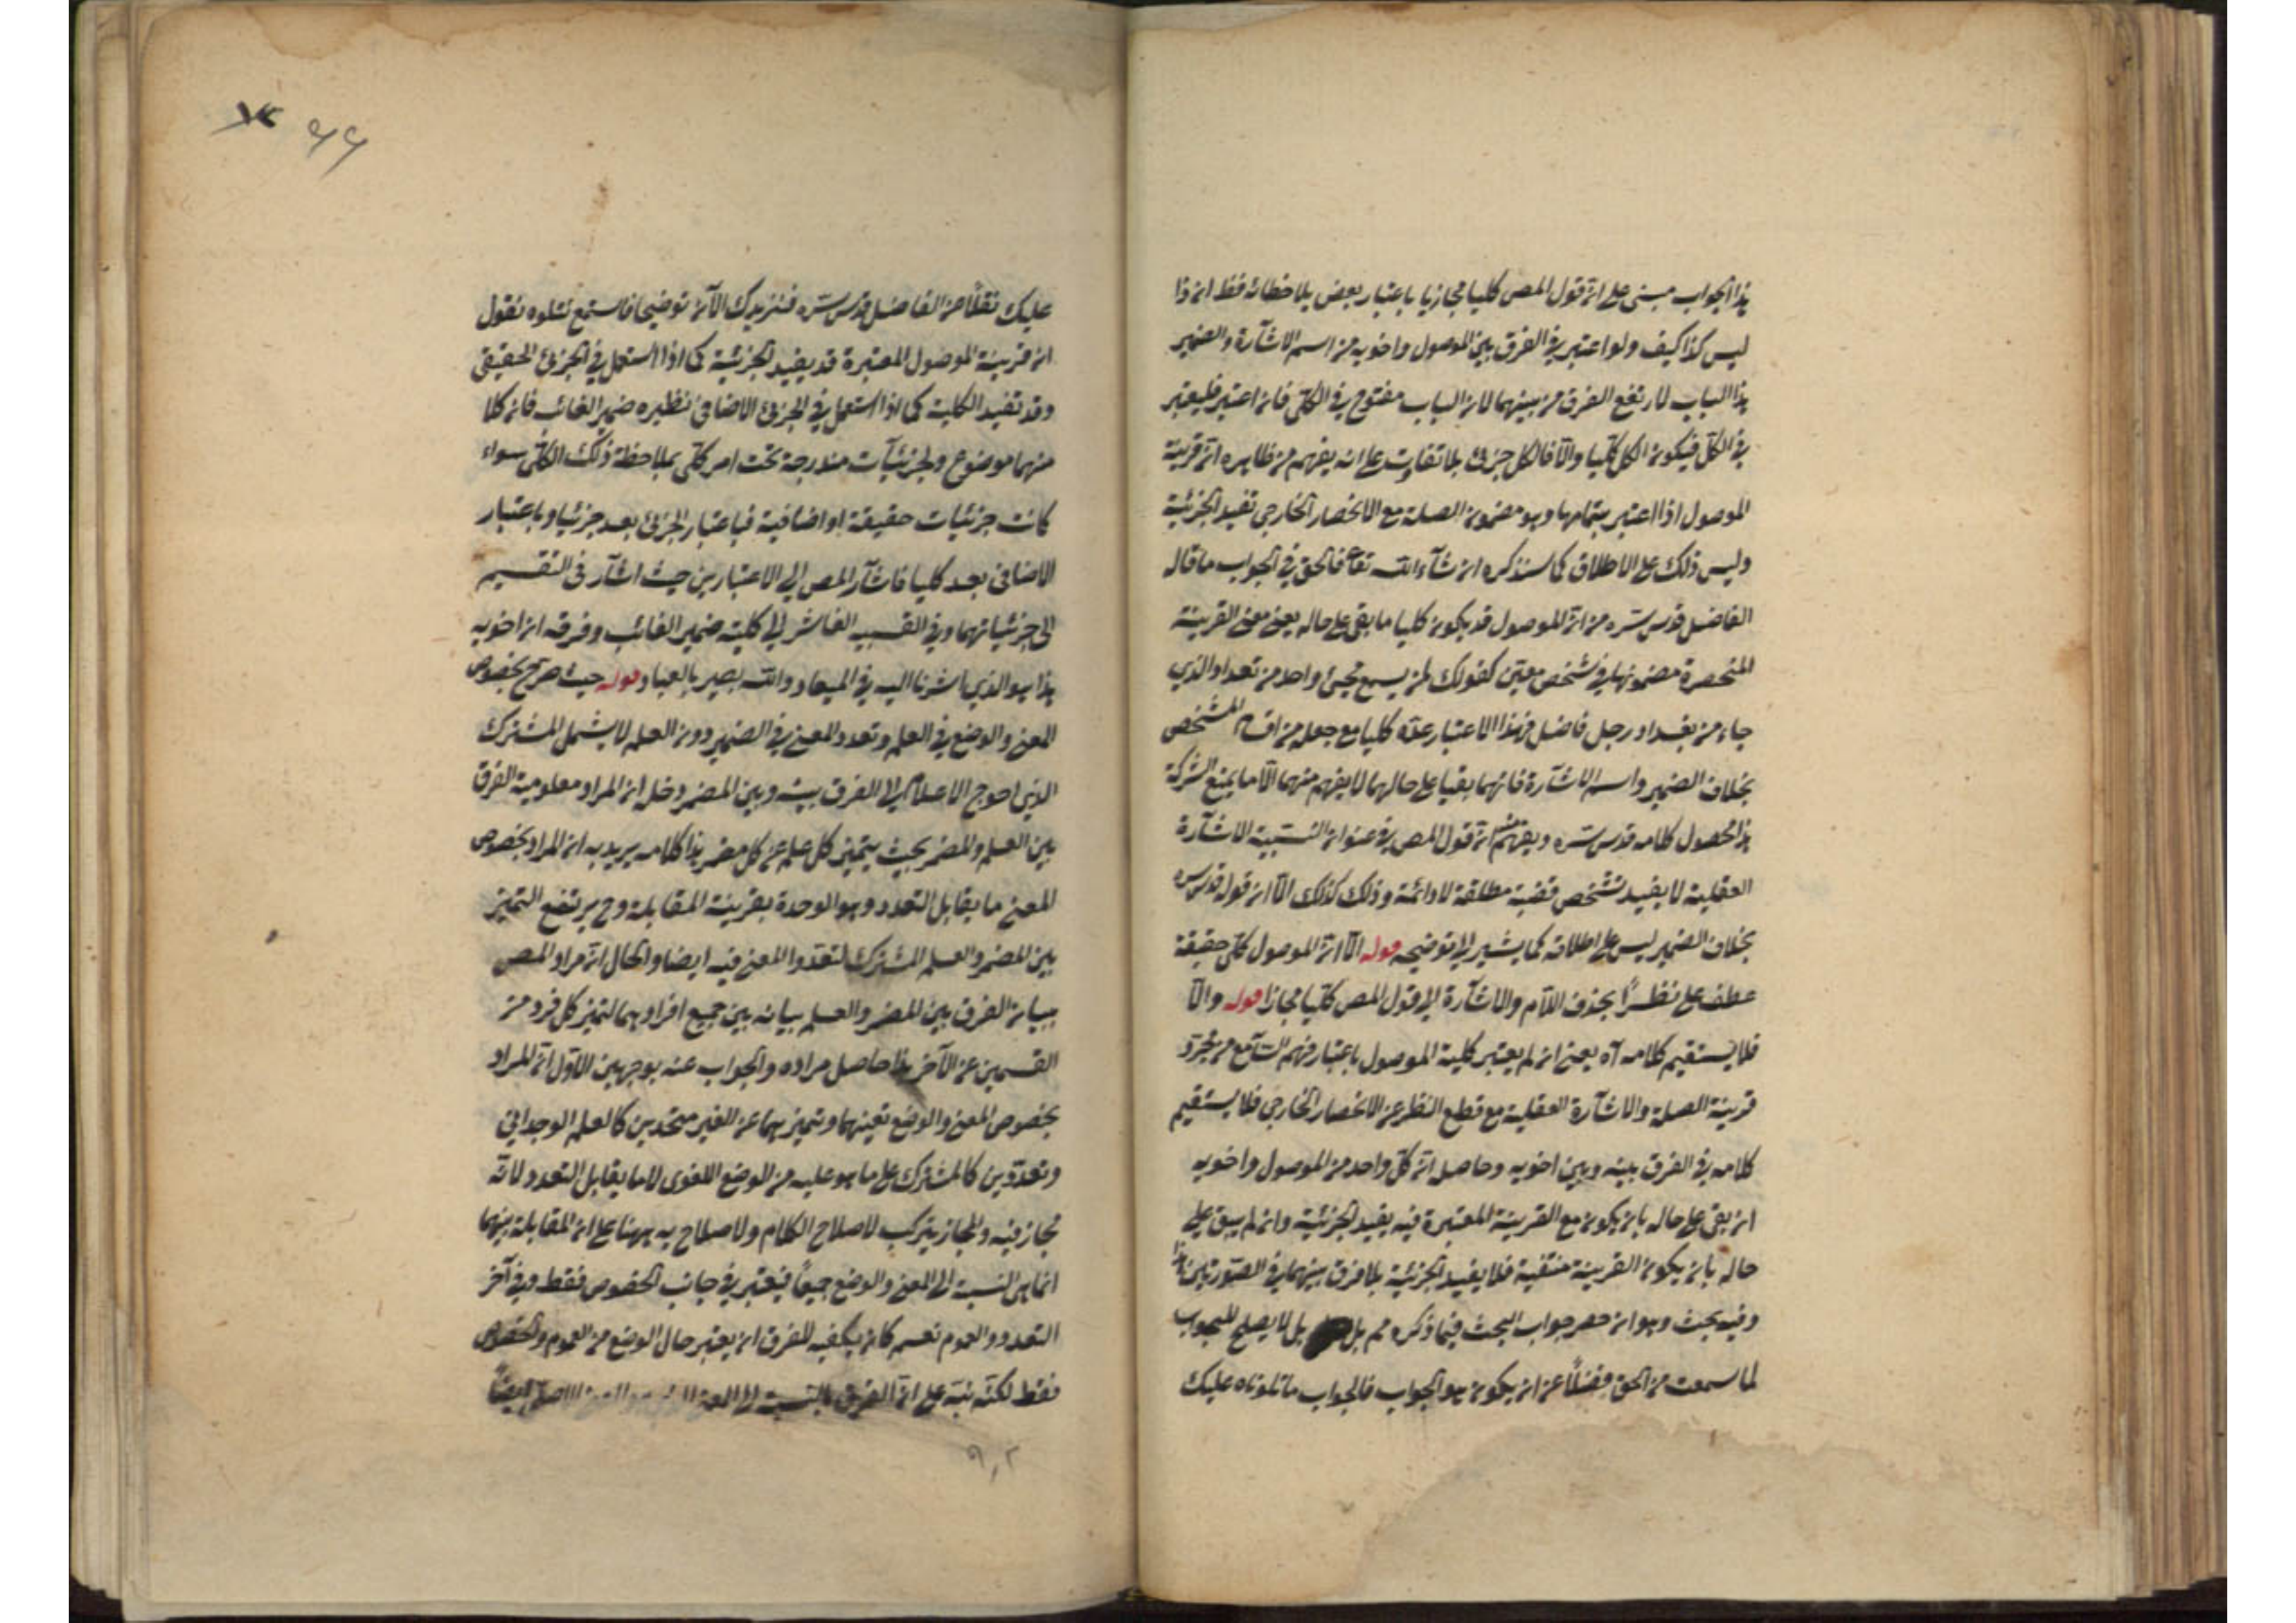 هذا الجواب مبنى على ان قول المص كليا مجازيا باعتبار بعض ملاحظاته فقط اذ ذا
ليس كذا كيف ولو اعتبر فى الفرق بين الموصول واخويه من اسم الاشآرة والضمير
هذا الباب لارتفع الفرق من بينهما لان الباب مفتوح فى الكلى فان اعتبر فليعتبر
فى الكل فيكون الكل كليا والا فالكل جزئى بلا تفاوت على انه يفهم من ظاهره ان قرينة
الموصول اذا اعتبر بتمامها وهو مضمون الصلة مع الانحصار الخارجى تفيد الجزئية
وليس ذلك على الاطلاق كما سنذكره ان شآء الله تعا فالحق فى الجواب ما قاله
الفاضل قدس سره من ان الموصول قد يكون كليا ما بقى على حاله يعنى معنى القرينة
المنحصرة مضمونها فى شخص معين كقولك لمن يسمع مجئ واحد من تعداد الذى
جاء من بغداد رجل فاضل فهذا الاعتبار عده كليا مع جعله من اقسام المشخص
بخلاف الضمير واسم الاشآرة فانهما بقيا على حالهما لا يفهم منهما الا ما يمنع الشركة
هذا محصول كلامه قدس سره ويفهم منه ان قول المص فى عنوان التنبيه الاشآرة
العقلية لا يفيد تشخص قضية مطلقة لا دائمة وذلك كذلك الا ان قوله قدس سره
بخلاف الضمير ليس على اطلاقه كما يشير الى توضيحه قوله الا ان الموصول كلى حقيقة
عطف على نظرًا بحذف اللام والاشآرة الى قول المص كليا مجازا قوله والا
فلا يستقيم كلامه آه يعنى ان لم يعتبر كلية الموصول باعتبار فهم السآمع من مجرد
قرينة الصلة والاشآرة العقلية مع قطع النظر عن الانحصار الخارجى فلا يستقيم
كلامه فى الفرق بينه وبين اخويه وحاصله ان كل واحد من الموصول واخويه
ان بقى على حاله بان يكون مع القرينة المعتبرة فيه يفيد الجزئية وان لم يبق على
حاله بان يكون القرينة منتفية فلا يفيد الجزئية بلا فرق بينهما فى الصورتين هذا
وفيه بحث وهو ان حصر جواب البحث فيما ذكره مم بل بل لا يصلح للجواب
لما سمعت من الحق فضلًا عن ان يكون هو الجواب فالجواب ما تلوناه عليك
٦٦
عليك نقلًا عن الفاضل قدس سره فنزيدك الآن توضيحا فاستمع نتلوه نقول
ان قرينة الموصول المعتبرة قد يفيد الجزئية كما اذا استعمل فى الجزئ الحقيقى
وقد تفيد الكلية كما اذا استعمل فى الجزئ الاضافى نظيره ضمير الغائب فان كلا
منهما موضوع لجزئيآت مندرجة تحت امر كلى بملاحظة ذلك الكلى سواء
كانت جزئيات حقيقة او اضافية فباعتبار الجزئ بعد جزئيا وباعتبار
الاضافى بعد كليا فاشآر المص الى الاعتبارين حيث اشآر فى التقسيم
الى جزئياتهما وفى التنبيه العاشر الى كلية ضمير الغائب وفرقه ان اخويه
هذا هو الذى اشرنا اليه فى الميعاد والله بصير بالعباد قوله حيث صرح بخصوص
المعنى والوضع فى العلم وتعدد المعنى فى الضمير دون العلم لا يشمل المشترك
الذى احوج الاعلام الى الفرق بينه وبين المضمر دخل ان المراد معلومية الفرق
بين العلم والمضمر بحيث يتميز كل علم عن كل مضمر هذا كلامه يريد به ان المراد بخصوص
المعنى ما يقابل التعدد وهو الوحدة بقرينة المقابلة وح يرتفع التميز
بين المضمر والعلم المشترك لتعدد المعنى فيه ايضا والحال ان مراد المص
بيان الفرق بين المضمر والعلم بيانه بين جميع افرادهما لتميز كل فرد من
القسمين عن الآخر هذا حاصل مراده والجواب عنه بوجهين الاول ان المراد
بخصوص المعنى والوضع تعينهما وتميزهما عن الغير متحدين كالعلم الوجدانى
وتعددين كالمشترك على ما هو عليه من الوضع اللغوى لا ما يقابل التعدد لانه
مجاز فيه والمجاز يرتكب لاصلاح الكلام ولا صلاح به ههنا على ان المقابلة بينهما
انما هى النسبة الى المعنى والوضع جميعًا فيعتبر فى جانب الخصوص فقط وفى آخر
التعدد والعموم نعم كان يكفيه للفرق ان يعتبر حال الوضع من العموم والخصوص
فقط لكنه نبه على ان الفرق بالنسبة الى المعنى ايضًا